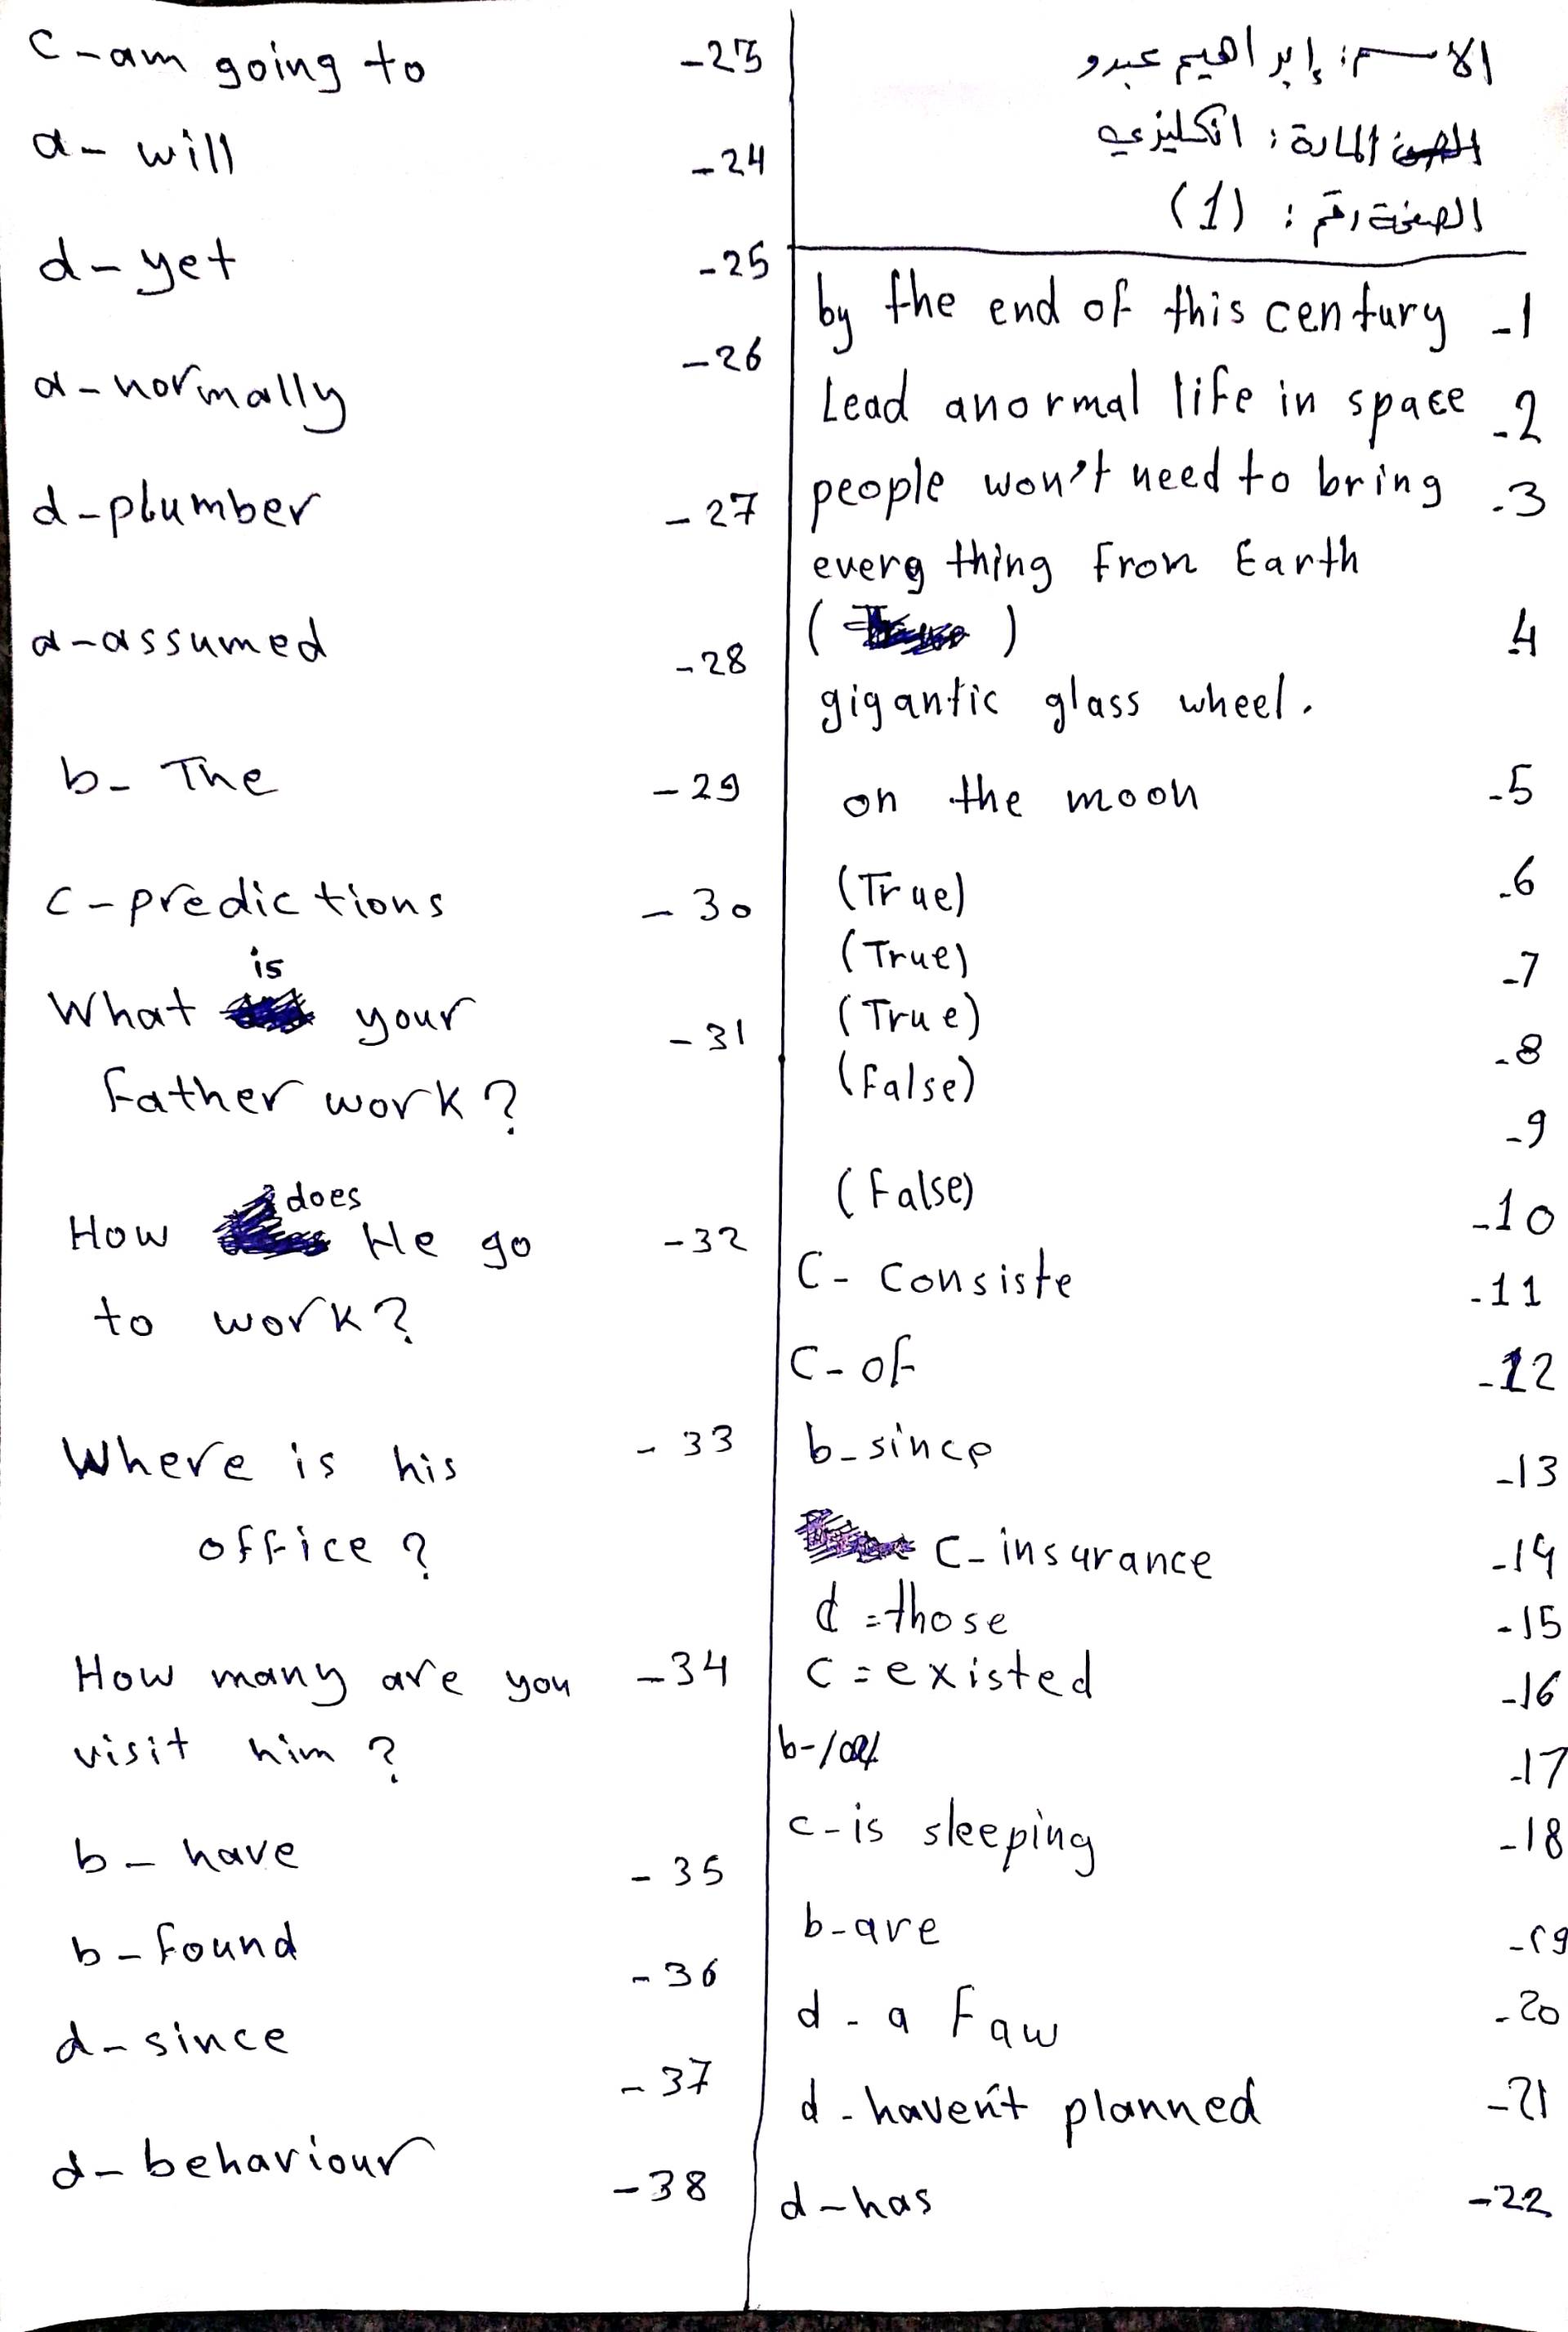 الاسم: إبراهيم عبدو
المادة: انكليزي
الصفحة رقم: (1)
by the end of this century -1
Lead anormal life in space -2
people won't need to bring -3
everg thing from Earth
( ) 4
gigantic glass wheel.
on the moon -5
(True) -6
(True) -7
(True) -8
(False) -9
(False) -10
C- Consiste -11
C- of -12
b- since -13
C- insurance -14
d = those -15
C = existed -16
b- -17
c- is sleeping -18
b- are -19
d - a Faw -20
d - haven't planned -21
d - has -22
C - am going to -23
a - will -24
d - yet -25
a - normally -26
d - plumber -27
a - assumed -28
b - The -29
C - predictions -30
What is your -31
father work?
How does He go -32
to work?
Where is his -33
office?
How many are you -34
visit him?
b - have -35
b - found -36
d - since -37
d - behaviour -38